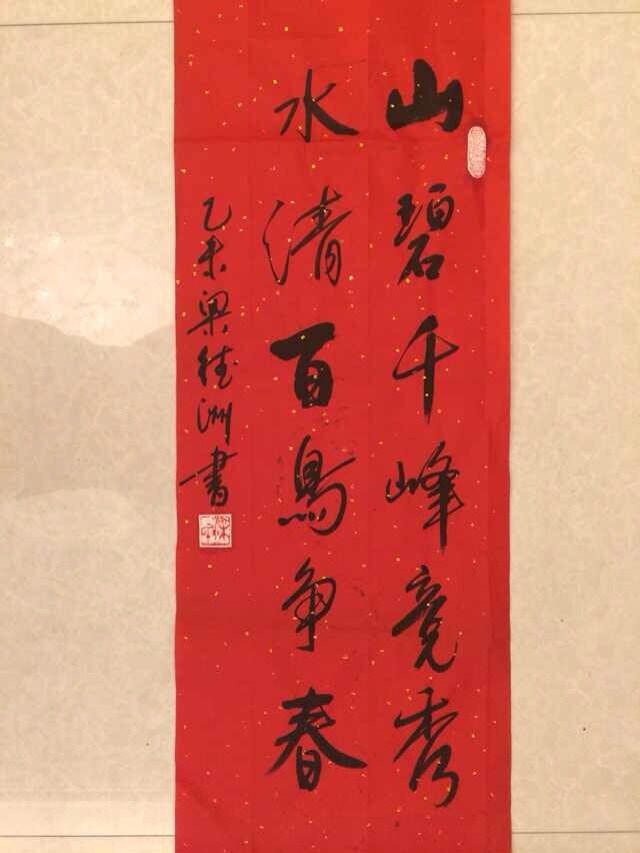 山碧千峰竞秀
水清百鸟争春
乙未梁德洲书